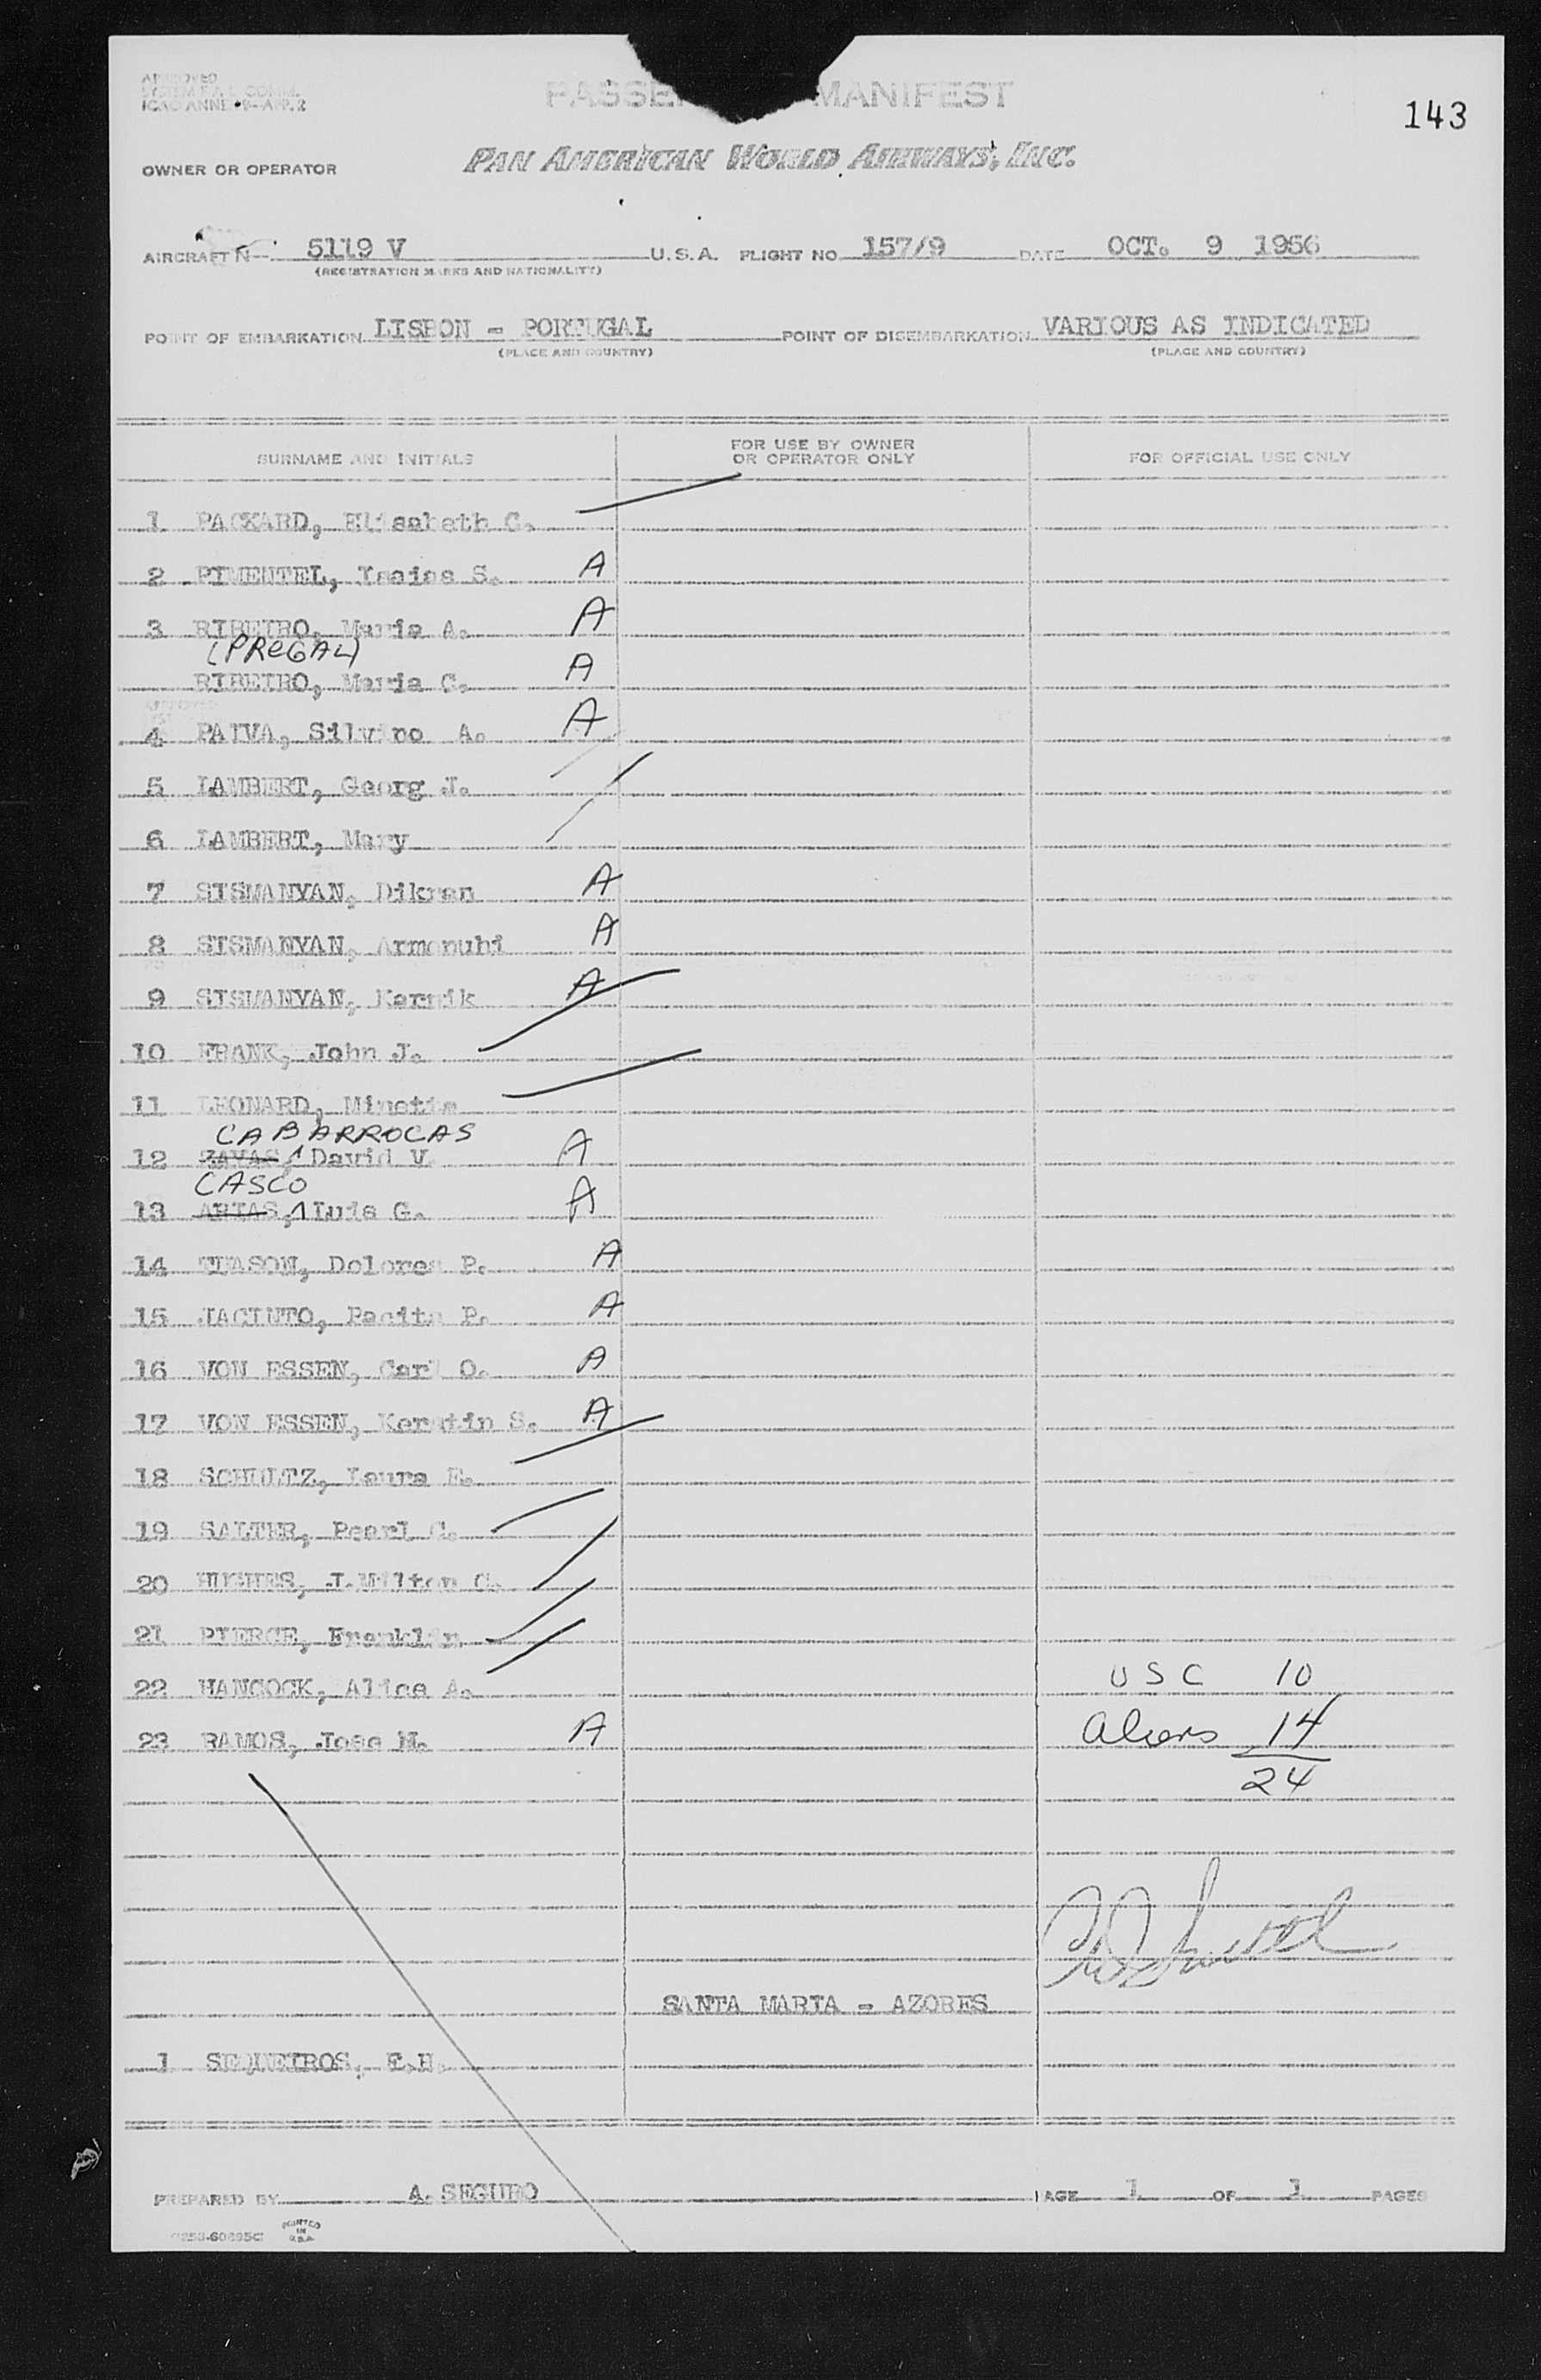 143
APPROVED
SYSTEM F.A.L. COMM.
ICAO ANNEX 9-APP. 2
PASSE MANIFEST
OWNER OR OPERATOR PAN AMERICAN WORLD AIRWAYS, INC.
AIRCRAFT N 5119 V U.S.A. FLIGHT NO 157/9 DATE OCT. 9 1956
(REGISTRATION MARKS AND NATIONALITY)
POINT OF EMBARKATION LISBON - PORTUGAL POINT OF DISEMBARKATION VARIOUS AS INDICATED
(PLACE AND COUNTRY) (PLACE AND COUNTRY)
SURNAME AND INITIALS FOR USE BY OWNER OR OPERATOR ONLY FOR OFFICIAL USE ONLY
1 PACKARD, Elisabeth C.
2 PIMENTEL, Isaias S. A
3 RIBEIRO, Maria A. A
(PREGAL)
RIBEIRO, Maria C. A
4 PAIVA, Silvino A. A
5 LAMBERT, Georg J.
6 LAMBERT, Mary
7 SISMANYAN, Dikran A
8 SISMANYAN, Armenuhi A
9 SISMANYAN, Karnik A
10 FRANK, John J.
11 LEONARD, Minetta
CABARROCAS
12 ZAYAS, David V. A
CASCO
13 ARIAS, Luis G. A
14 TUASON, Dolores P. A
15 JACINTO, Pacita P. A
16 VON ESSEN, Carl O. A
17 VON ESSEN, Kerstin S. A
18 SCHULTZ, Laura E.
19 SALTER, Pearl C.
20 HUGHES, J.Milton C.
21 PIERCE, Franklin
22 HANCOCK, Alice A. USC 10
23 RAMOS, Jose M. A Aliens 14
24
SANTA MARIA - AZORES
1 SEQUEIROS, E.H.
PREPARED BY A. SEGURO PAGE 1 OF 1 PAGES
PRINTED IN U.S.A.